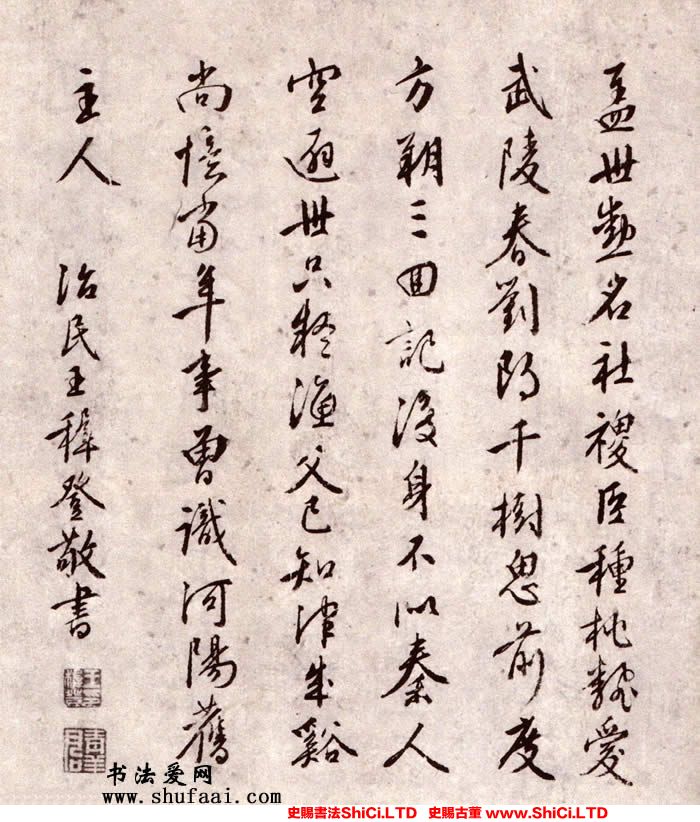 盖世勳名社稷臣種桃獨愛
武陵春劉郎千樹思前度
方朔三回記後身不似秦人
空避世只疑漁父已知津成谿
尚憶當年事曾識河陽舊
主人
治民王穉登敬書
书法爱网
www.shufaai.com
史賜書法ShiCi.LTD 史賜古董 www.ShiCi.LTD